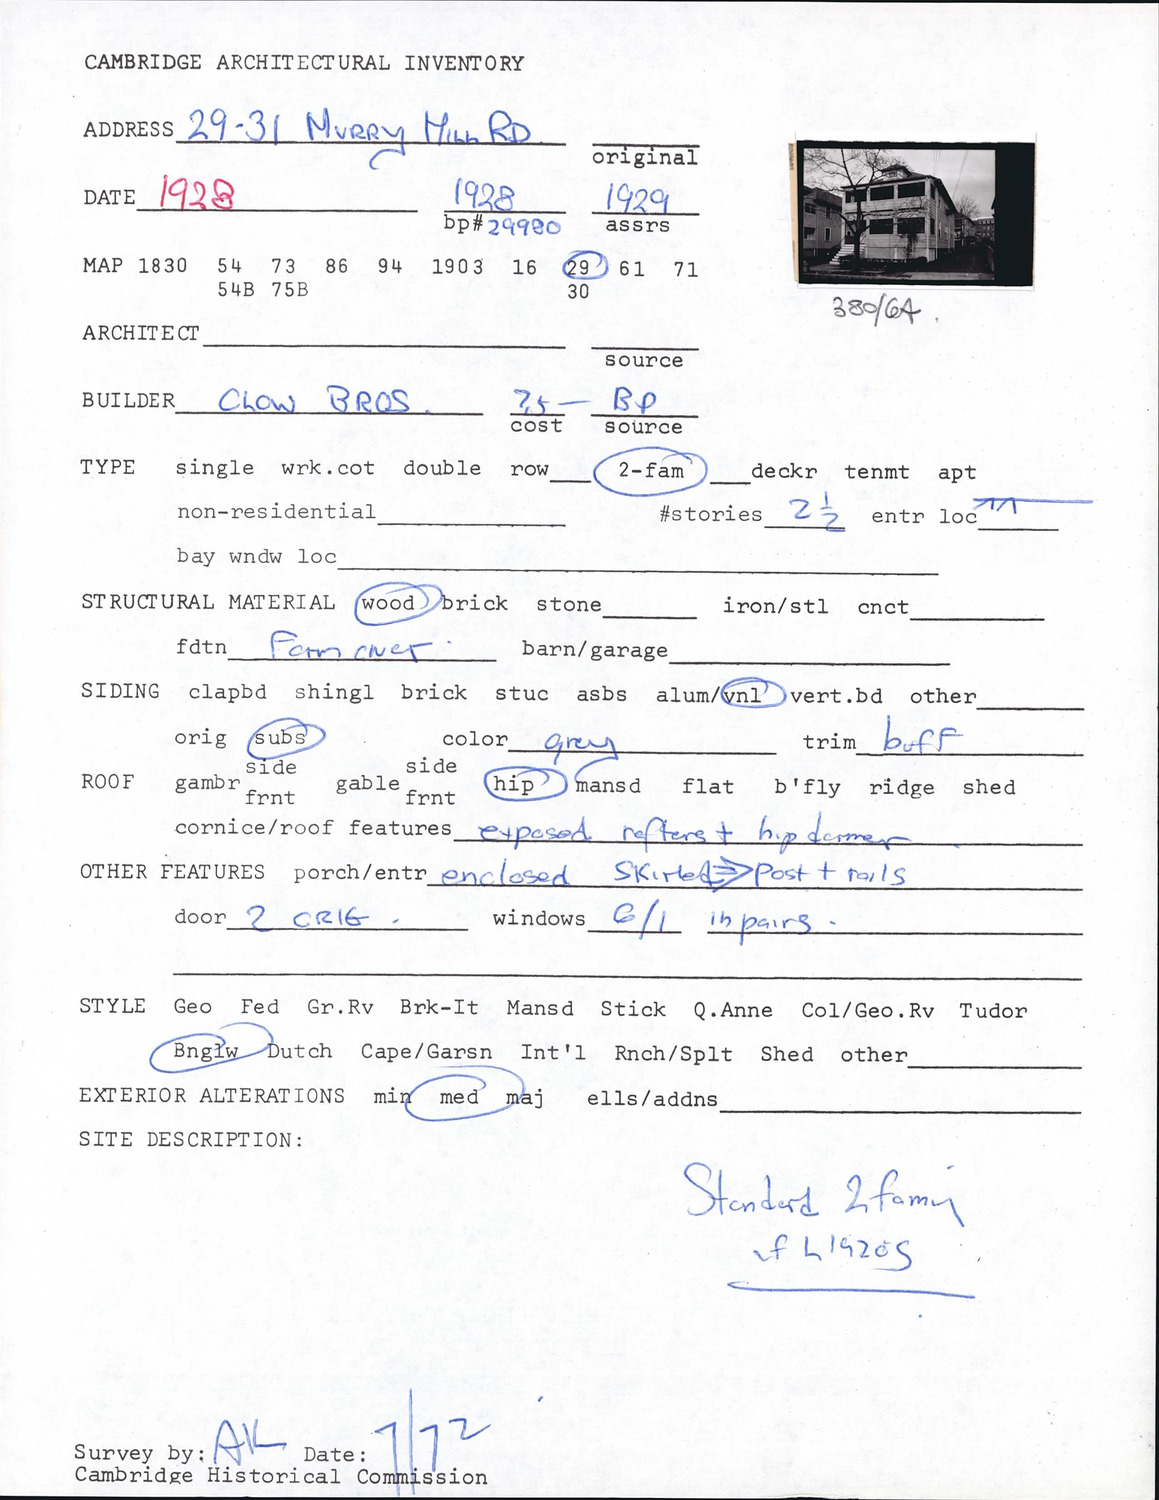 CAMBRIDGE ARCHITECTURAL INVENTORY
ADDRESS 29-31 MURRY HILL RD original
DATE 1928 1928 1929
bp# 29980 assrs
MAP 1830 54 73 86 94 1903 16 29 61 71
54B 75B 30
380/6A.
ARCHITECT
source
BUILDER CHOW BROS. BP
cost source
TYPE single wrk.cot double row 2-fam deckr tenmt apt
non-residential #stories 2 1/2 entr loc
bay wndw loc
STRUCTURAL MATERIAL wood brick stone iron/stl cnct
fdtn barn/garage
SIDING clapbd shingl brick stuc asbs alum/vnl vert.bd other
orig subs color grey trim buff
side side
ROOF gambr gable hip mansd flat b'fly ridge shed
frnt frnt
cornice/roof features exposed rafters + hip dormer
OTHER FEATURES porch/entr enclosed skirted => post + rails
door 2 ORIG. windows 6/1 in pairs.
STYLE Geo Fed Gr.Rv Brk-It Mansd Stick Q.Anne Col/Geo.Rv Tudor
Bnglw Dutch Cape/Garsn Int'l Rnch/Splt Shed other
EXTERIOR ALTERATIONS min med maj ells/addns
SITE DESCRIPTION:
Standard 2 family
1920s
Survey by: AK Date: 7/72
Cambridge Historical Commission